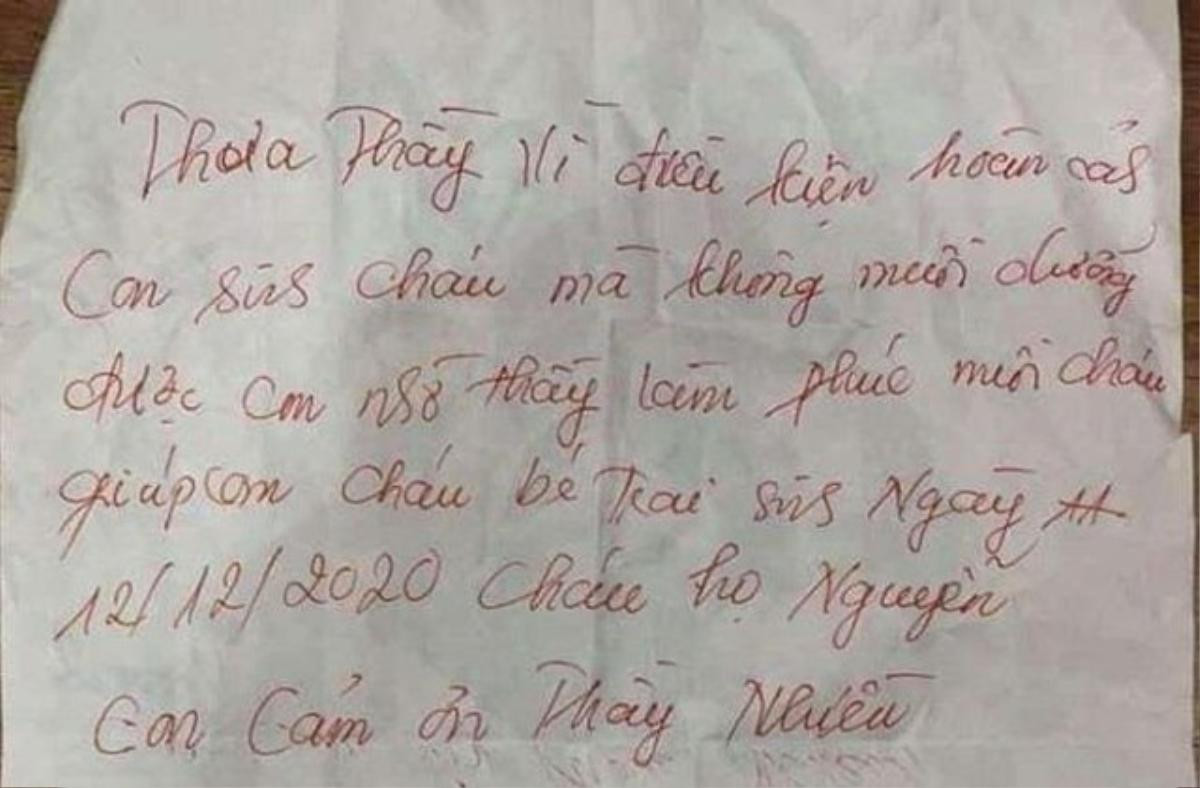 Thưa Thầy Vì điều kiện hoàn cảs
Con sīs cháu mà không nuôi dưỡng
được Con nsờ thầy làm phúc nuôi cháu
giúp con cháu bé Trai sīs Ngày
12/12/2020 cháu họ Nguyễn
Con Cảm ơn Thầy Nhiều